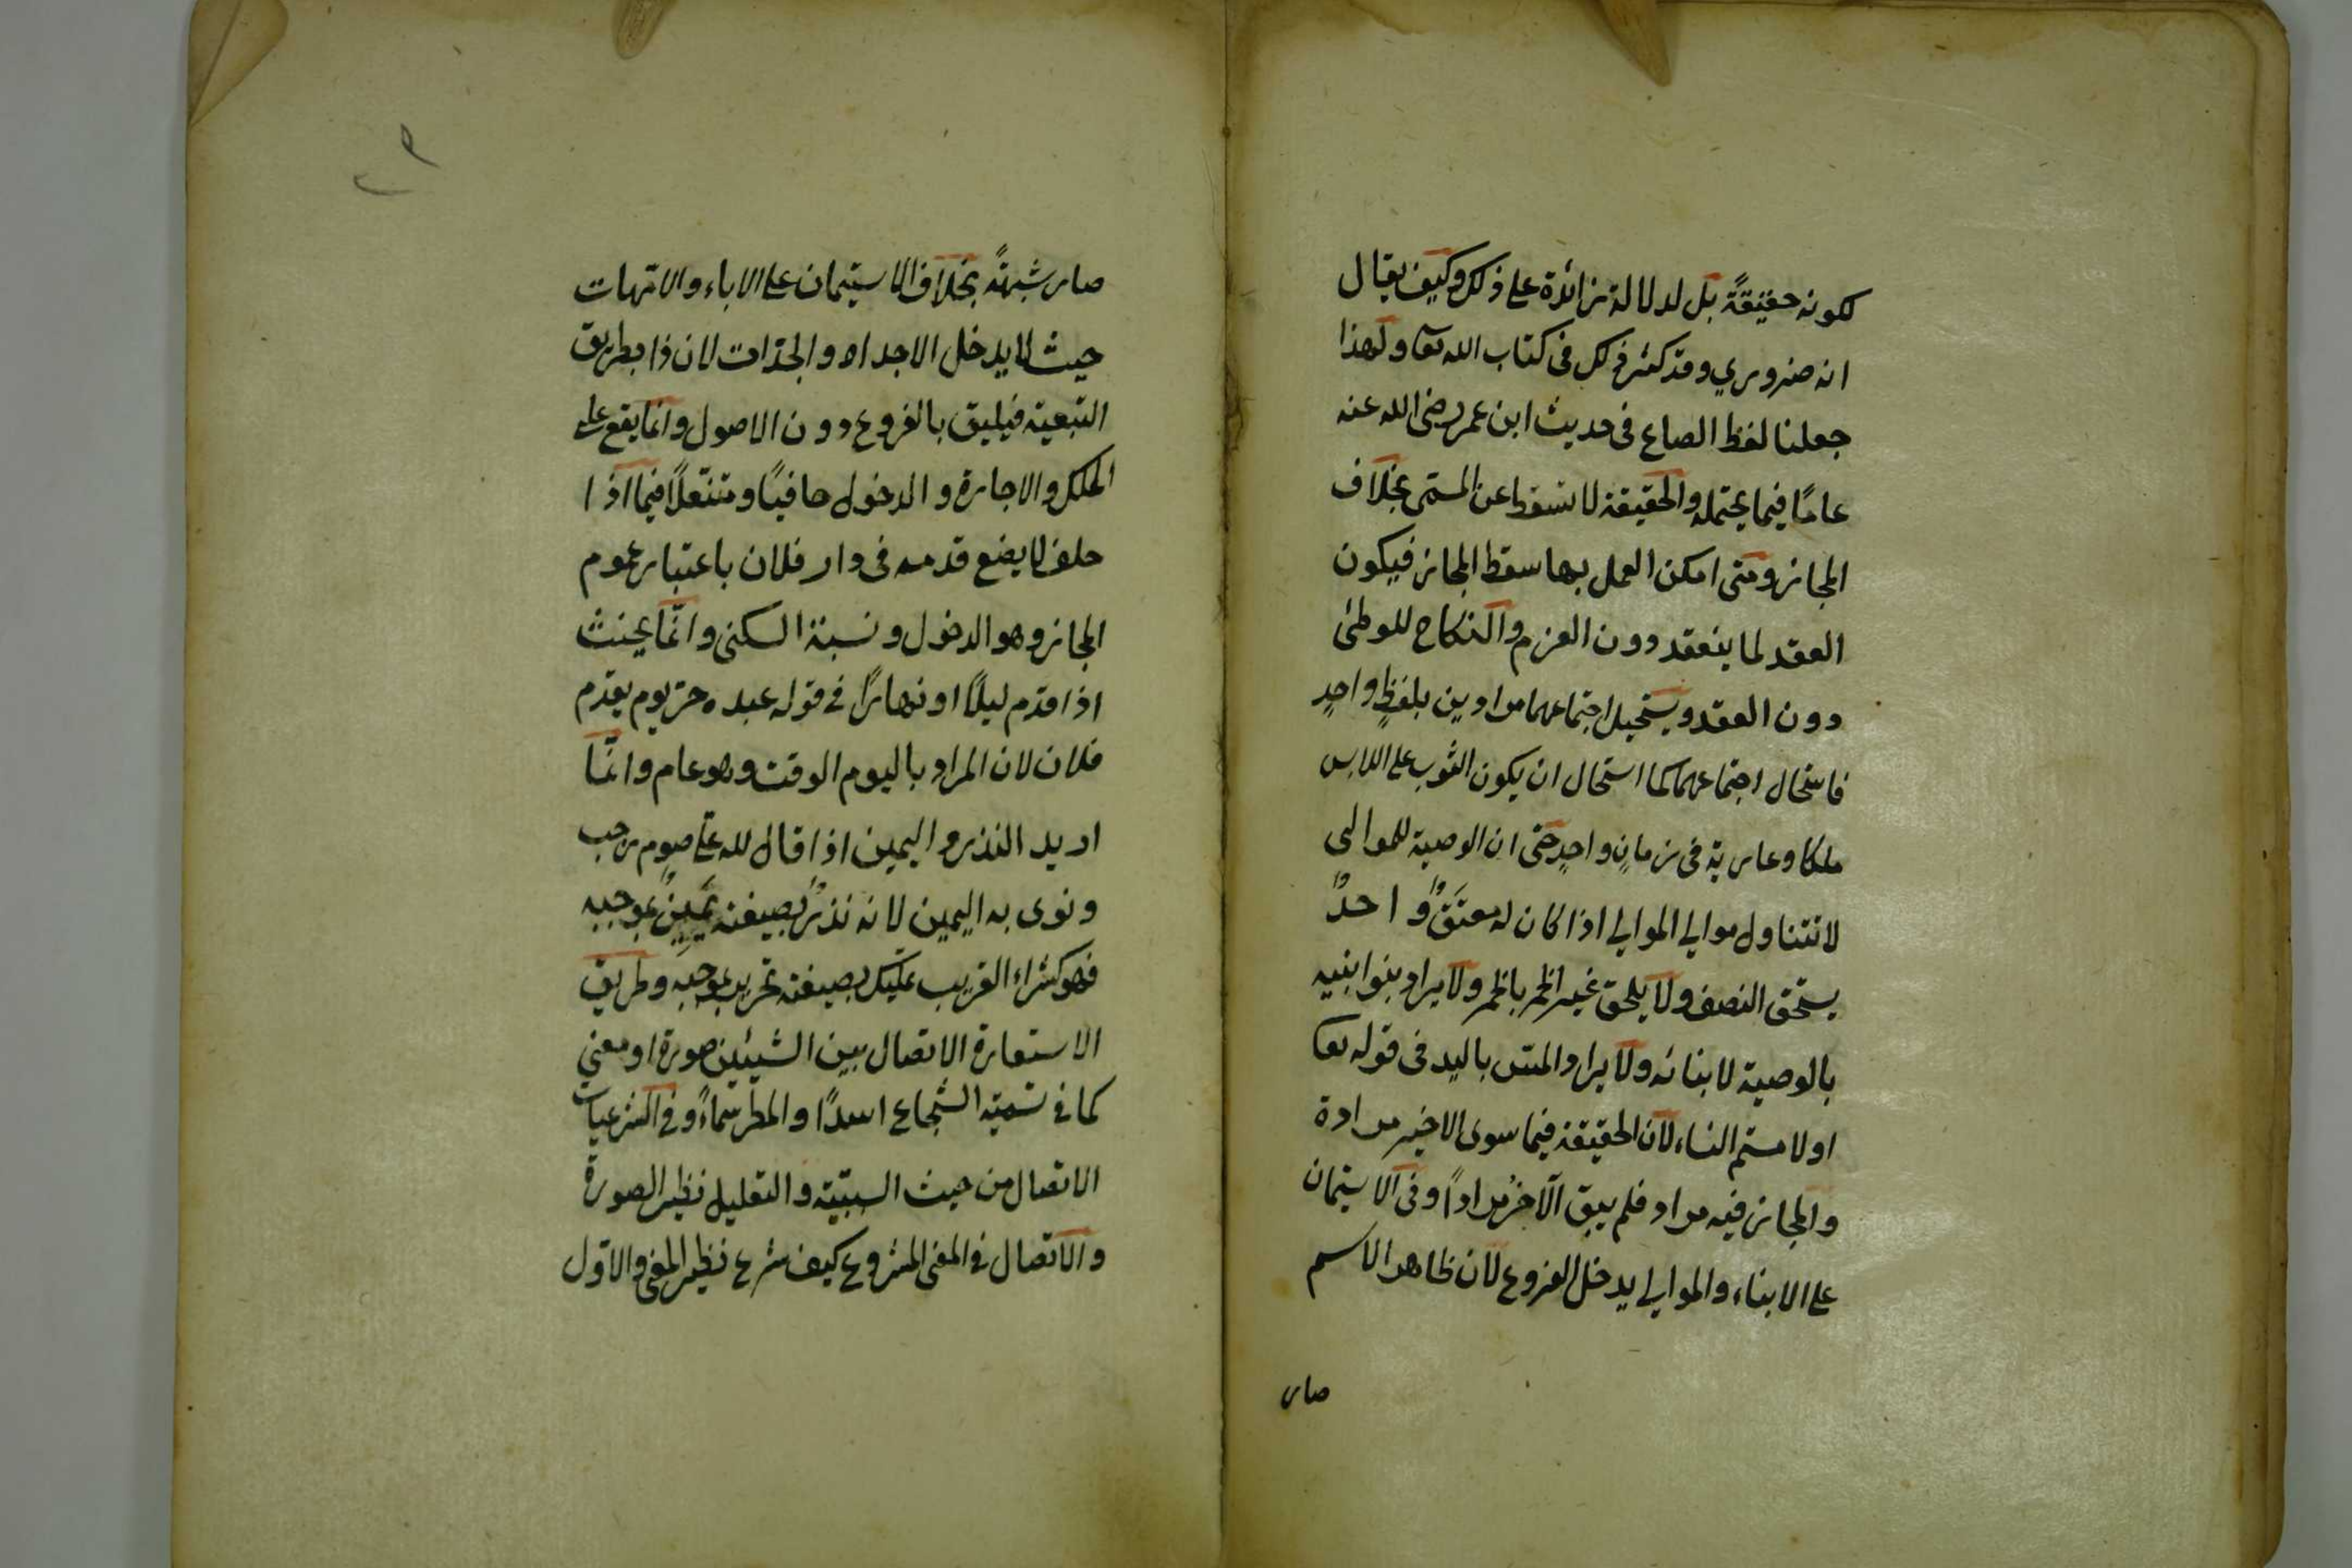 لكونه حقيقةً بل لدلالة زائدة على ذلك وكيف يقال
انه ضروري وقد كثر ذلك فى كتاب الله تعا ولهذا
جعلنا لفظ الصاع فى حديث ابن عمر رضى الله عنه
عامًا فيما يحتمله والحقيقة لا تسقط عن المسمى بخلاف
المجاز ومتى امكن العمل بها سقط المجاز فيكون
العقد لما ينعقد دون العزم والنكاح للوطئ
دون العقد ويستحيل اجتماعهما مرادين بلفظٍ واحدٍ
فاستحال اجتماعهما كما استحال ان يكون الثوب على اللابس
ملكا وعارية فى زمانٍ واحدٍ حتى ان الوصية للموالى
لا تتناول موالي الموالي اذا كان له معتَقٌ واحدٌ
يستحق النصف ولا يلحق غير الخمر بالخمر ولا يراد بنوا بنيه
بالوصية لابنائه ولا يراد المس باليد فى قوله تعا
او لامستم النساء لان الحقيقة فيما سوى الاخير مرادة
والمجاز فيه مراد فلم يبق الآخرُ مرادًا وفى الاستيمان
على الابناء والموالي يدخل الفروع لان ظاهر الاسم
صار
صار شبهةً بخلاف الاستيمان على الاباء والامّهات
حيث لا يدخل الاجداد والجدّات لان ذا بطريق
التبعية فيليق بالفروع دون الاصول وانما يقع على
الملك والاجارة والدخول حافيًا ومتنعّلًا فيما اذا
حلف لا يضع قدمه فى دار فلان باعتبار عموم
المجاز وهو الدخول ونسبة السكنى وانّما يحنث
اذا قدم ليلًا او نهارًا في قوله عبده حرّ يوم يقدم
فلان لان المراد باليوم الوقت وهو عام وانّما
اريد النذر واليمين اذا قال لله علَىّ صوم رجب
ونوى به اليمين لانه نذرٌ بصيغته يَمينٌ بموجبه
فهو كشراء القريب تمليك بصيغته تحرير بموجبه وطريق
الاستعارة الاتصال بين الشيئين صورة او معنى
كما في تسمية الشجاع اسدًا والمطر سماءً وفي الشرعيات
الاتصال من حيث السببيّة والتعليل نظير الصورة
والاتصال في المعنى المشروع كيف شرع نظير المعنى والاوّل